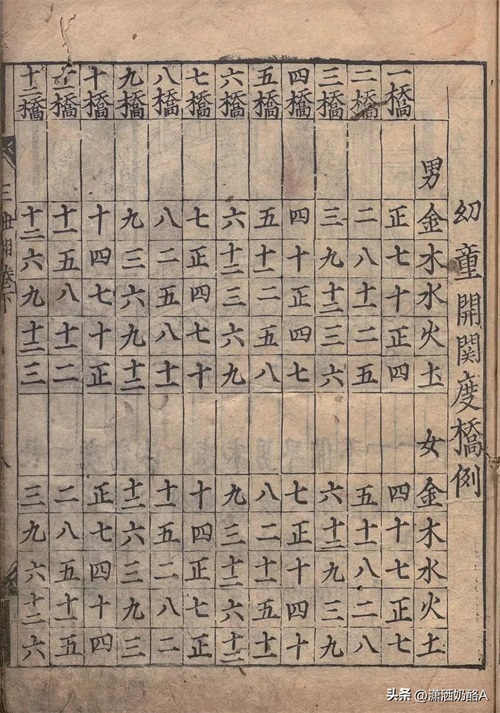 幼童開関度橋例
男金木水火土女金木水火土
一橋正七十正四四十七正七
二橋二八十一二五五十一八二八
三橋三九十二三六六十二九三九
四橋四十正四七七正十四十
五橋五十一二五八八二十一五十一
六橋六十二三六九九三十二六十二
七橋七正四七十十四正七正
八橋八二五八十一十一五二八二
九橋九三六九十二十二六三九三
十橋十四七十正正七四十四
十一橋十一五八十一二二八五十一五
十二橋十二六九十二三三九六十二六
三世相卷下
头条 @潇洒奶酪A